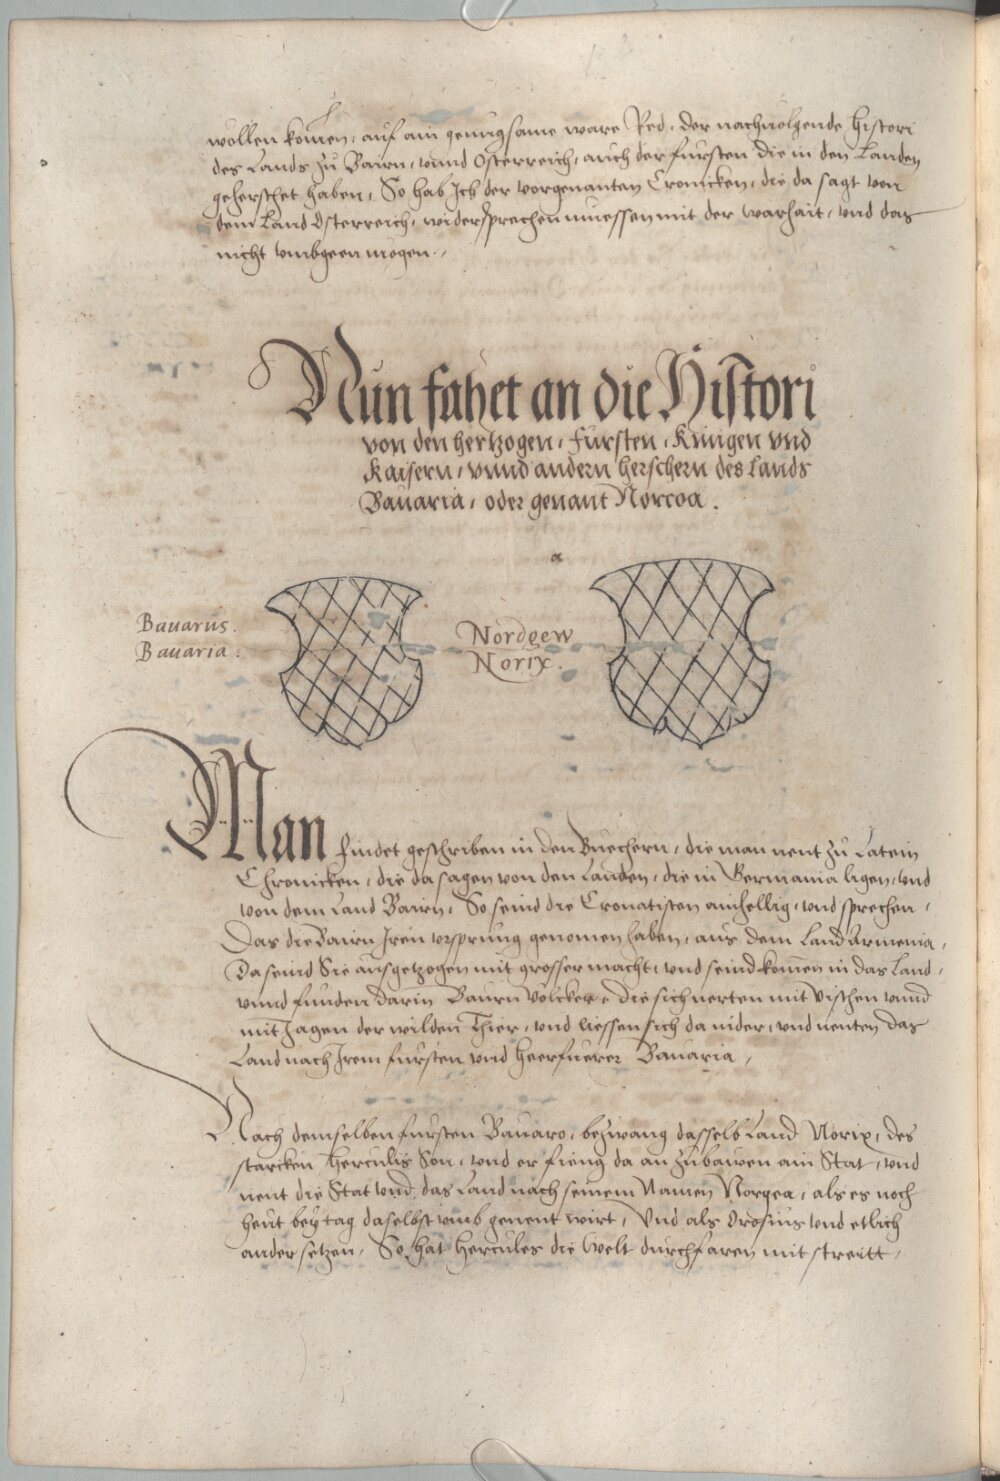 wöllen komen, auf ain genugsame ware Red, der nachuolgende histori
des Lands zů Bairn, vnnd Österreich, auch der fürsten die in den Landen
geherschet haben, So hab Ich der vorgenanten Cronicken, die da sagt von
dem Land Osterreich, widersprechen muessen mit der warhait, vnd das
nicht vmbgeen mögen.
Nun fahet an die Histori
von den hertzogen, Fürsten, Künigen vnd
Kaisern, vnnd andern herschern des Lands
Bauaria, oder genant Norcoa.
a
Bauarus.
Bauaria.
Nordgew
Norix.
Man findet geschriben in den Buechern, die man nent zů Latein
Chronicken, die da sagen von den Landen, die in Germania ligen, vnd
von dem Land Bairn, So seind die Cronatisten ainhellig, vnd sprechen,
Das die Bairn Iren vrsprung genomen haben, aus dem Land Armenia,
Da seind Sie ausgetzogen mit grosser macht, vnd seind komen in das Land,
vnnd funden darin Baurn Völcker, die sich nerten mit Vischen vnnd
mit Jagen der wilden Thier, vnd liessen sich da nider, vnd nenten das
Land nach Irem fürsten vnd heerfuerer Bauaria,
Nach demselben fursten Bauaro, bezwang dasselb Land Norix, des
starcken Herculis Son, vnd er fieng da an zůbawen ain Stat, vnd
nent die Stat vnd das Land nach seinem Namen Norgea, als es noch
heut bey tag daselbst vmb genent wirt, Vnd als Orosius vnd etlich
ander setzen, So hat Hercules die Welt durchfaren mit streitt,